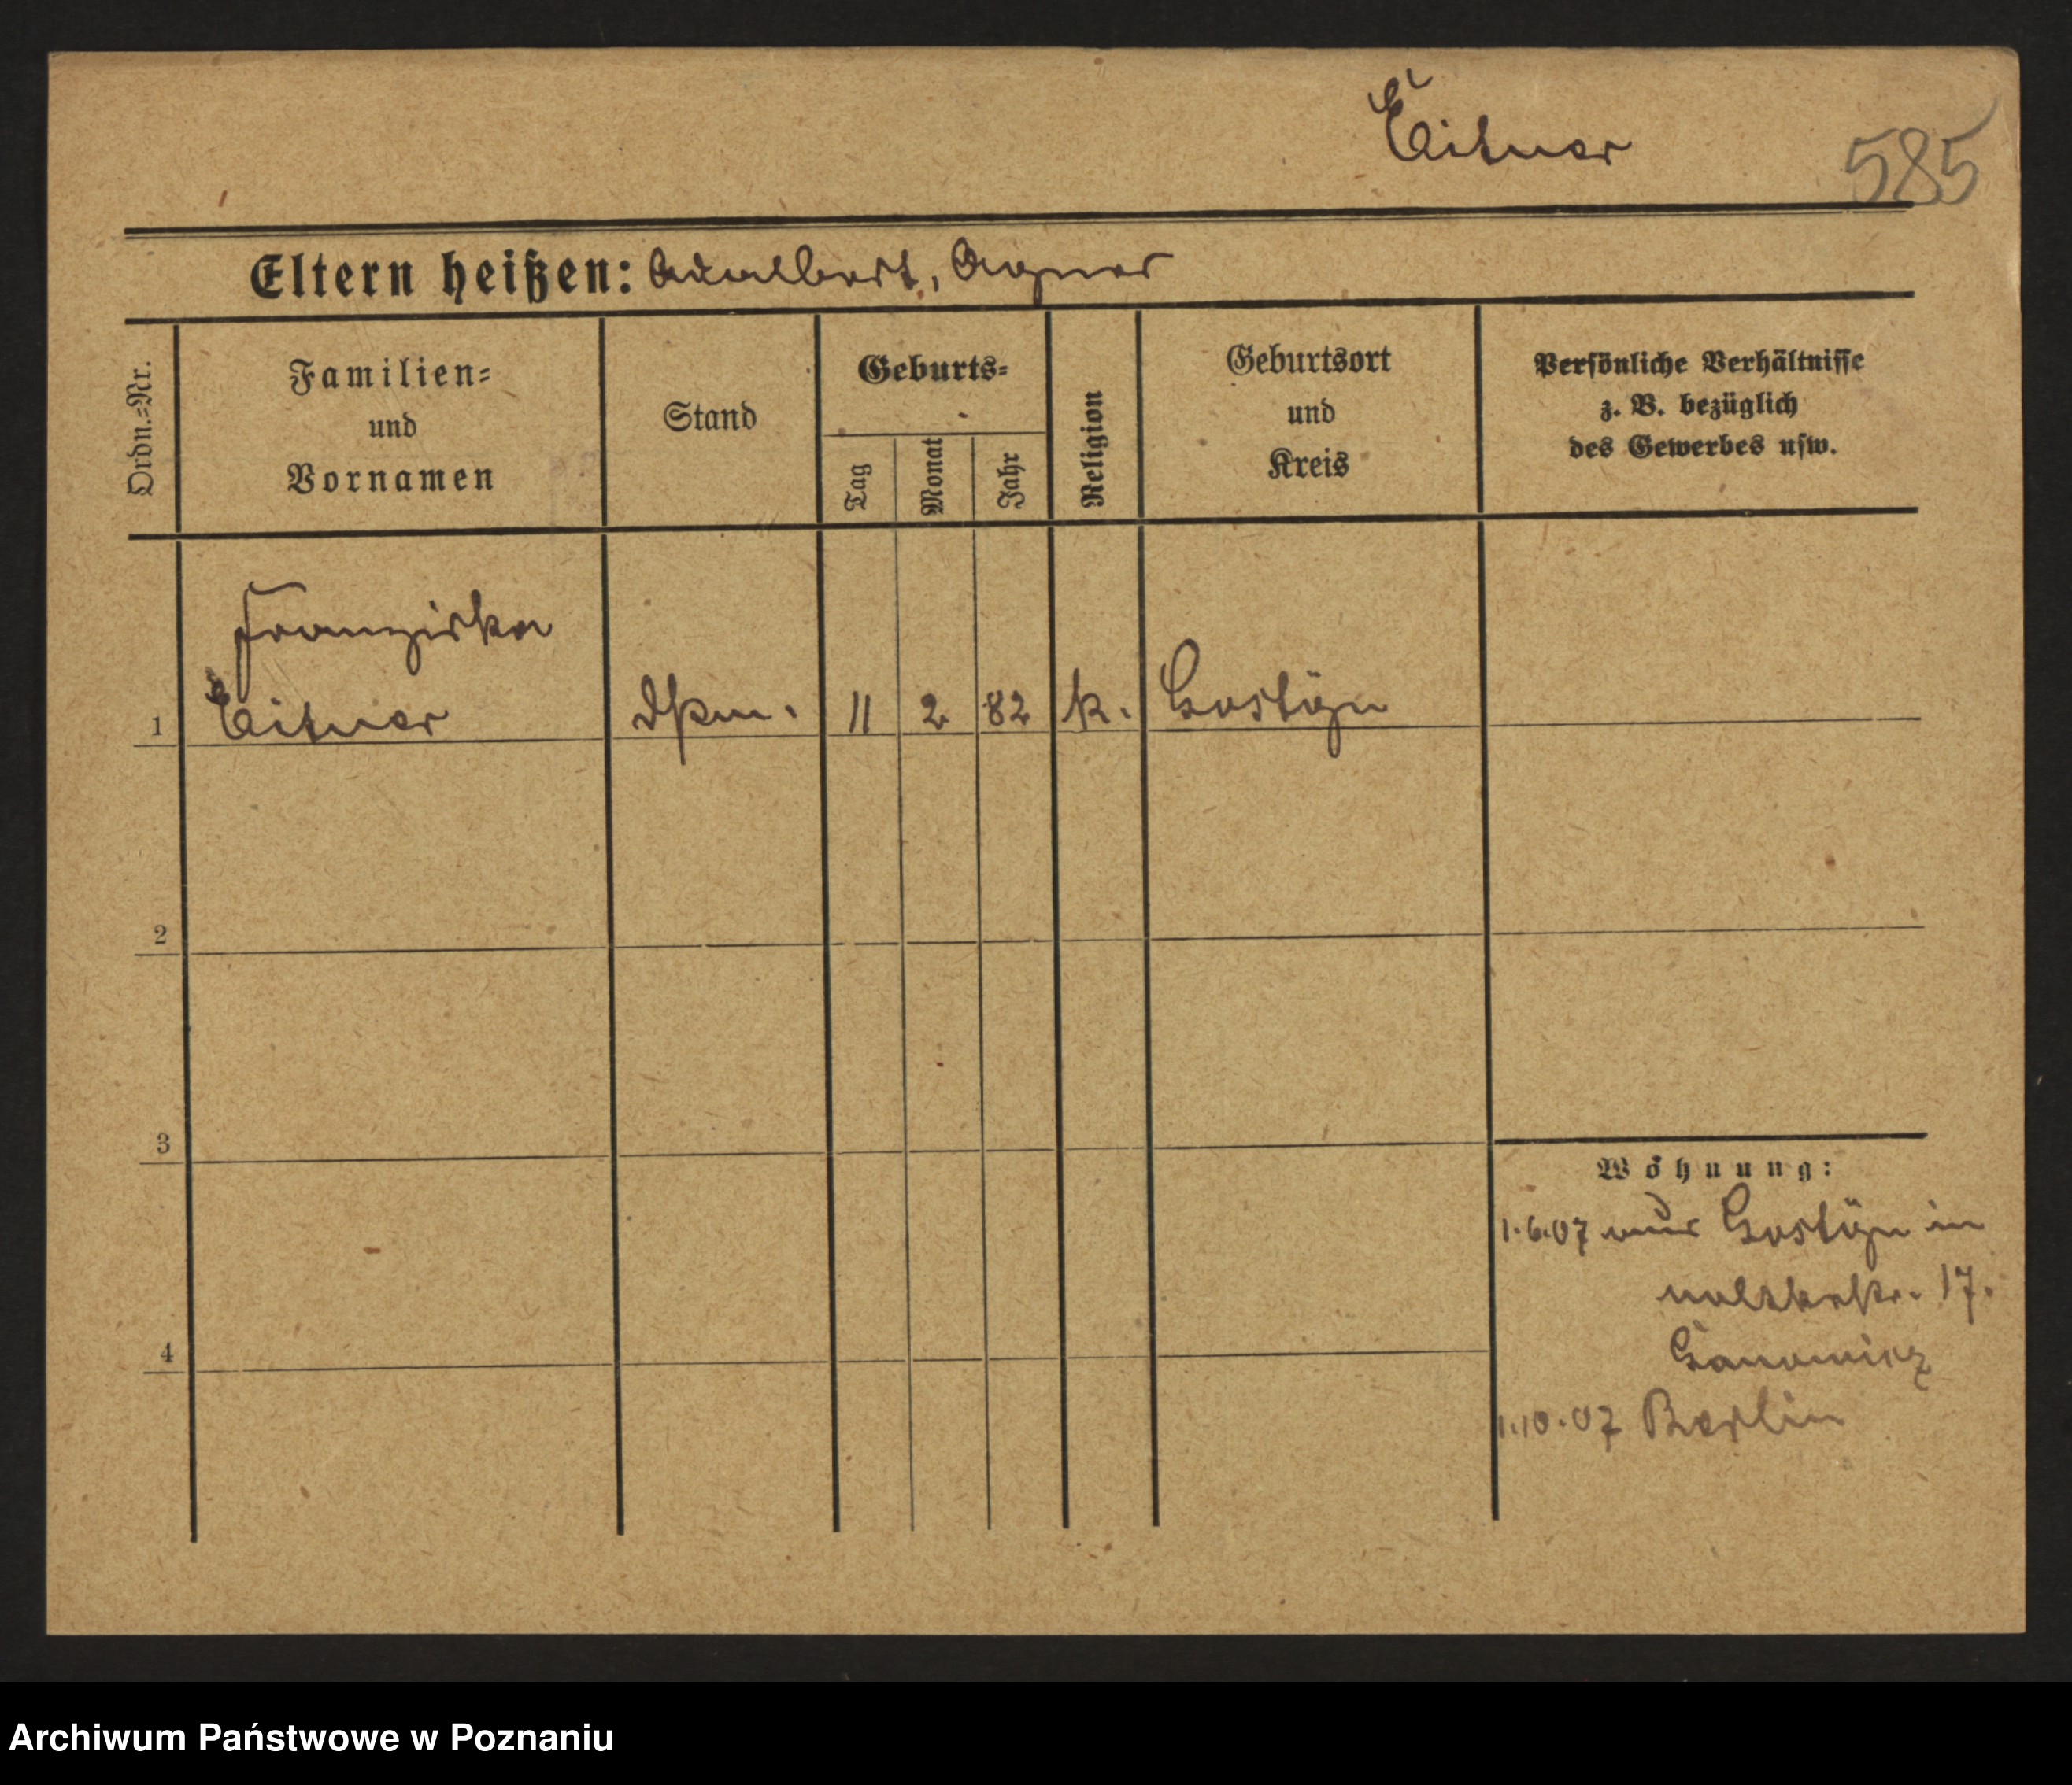 Eitner
585
Eltern heißen: Adalbert, Agnes
Ordn.=Nr.
Familien=
und
Vornamen
Stand
Geburts=
Tag
Monat
Jahr
Religion
Geburtsort
und
Kreis
Persönliche Verhältnisse
z. B. bezüglich
des Gewerbes usw.
Franziska
1 Eitner 11 2 82 k. Gostyn
2
3
4
Wohnung:
1.6.07 aus Gostyn in
17.
1.10.07 Berlin
Archiwum Państwowe w Poznaniu